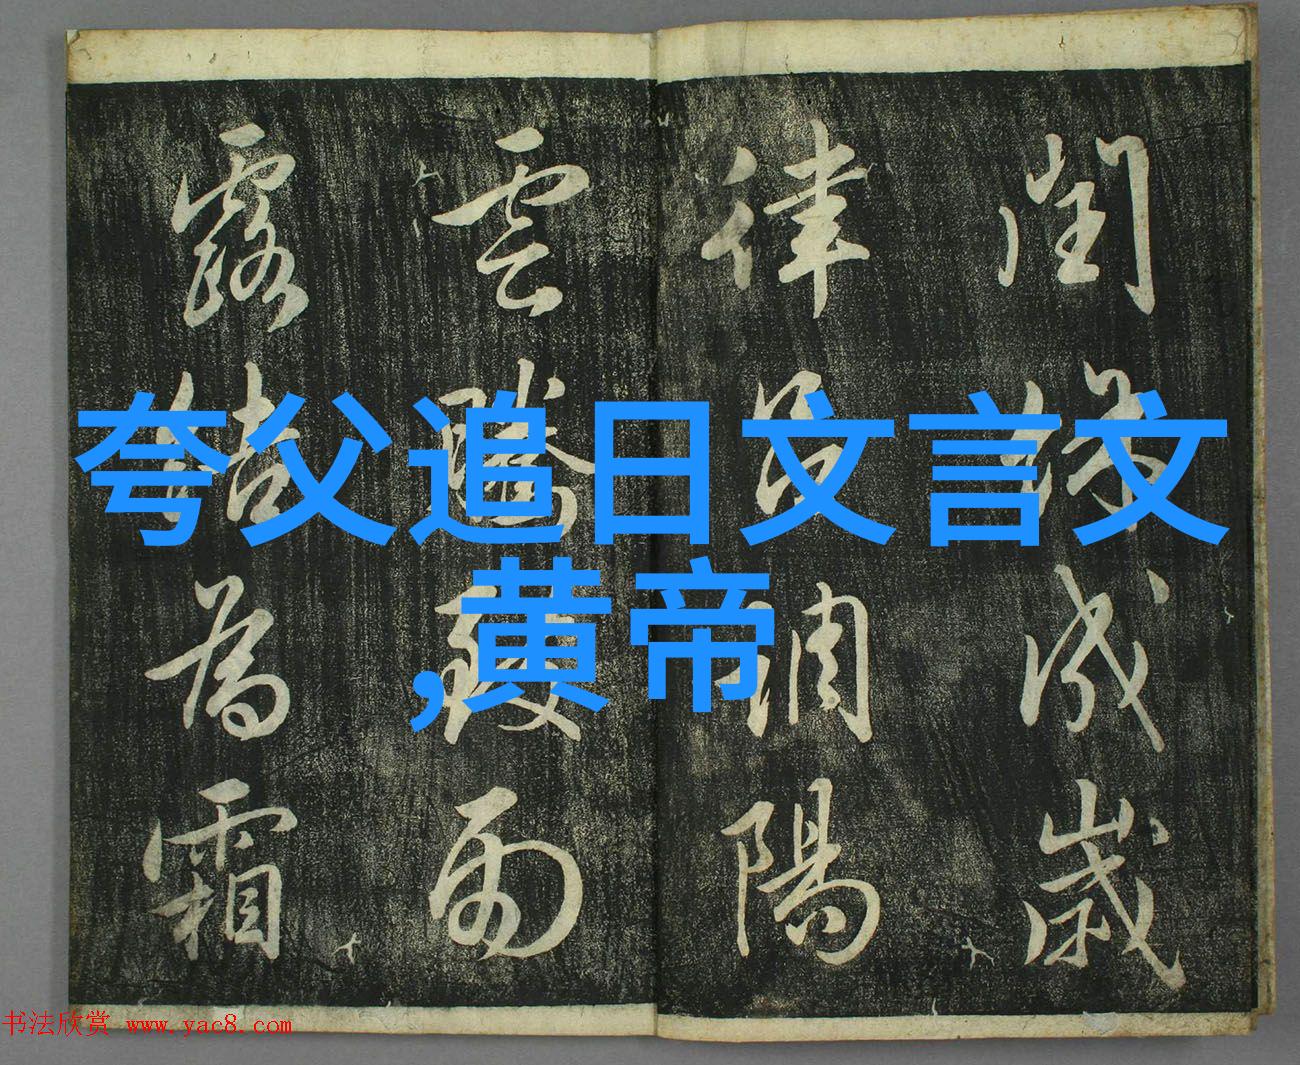 閏餘成歲
律呂調陽
雲騰致雨
露結為霜
夸父追日文言文
,黄帝
书法欣赏 www.yac8.com